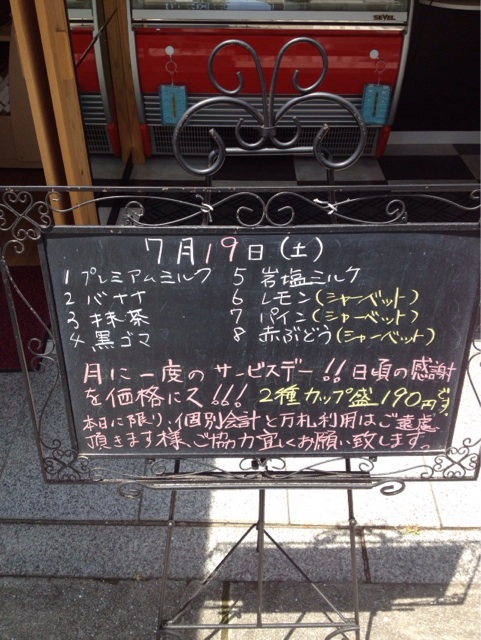 SEVEL
7月19日(土)
1 プレミアムミルク 5 岩塩ミルク
2 バナナ 6 レモン(シャーベット)
3 抹茶 7 パイン(シャーベット)
4 黒ゴマ 8 赤ぶどう(シャーベット)
月に一度のサービスデー!!日頃の感謝
を価格にて!!! 2種カップ盛190円です。
本日に限り、個別会計と万札利用はご遠慮
頂きます様、ご協力宜くお願い致します。